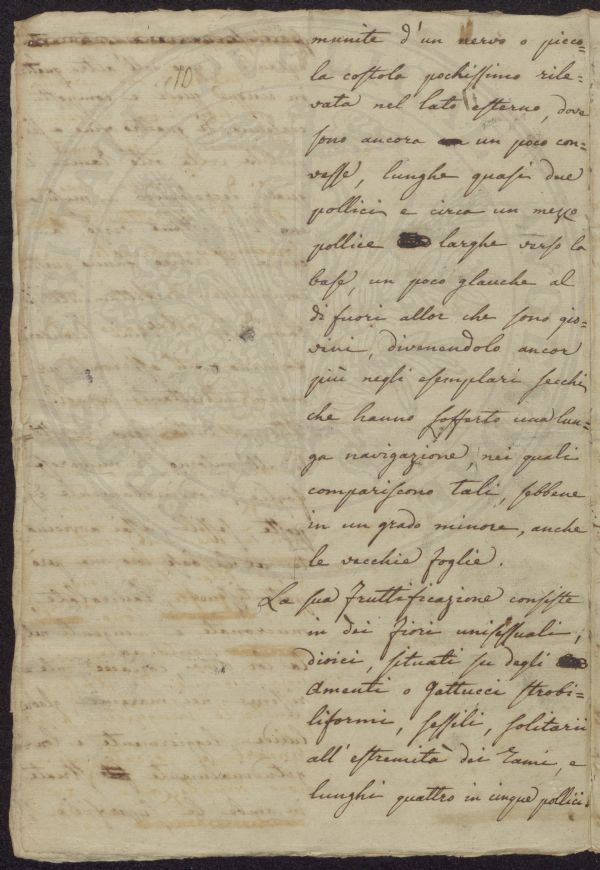 10
munite d'un nervo o picco=
la costola pochissimo rile=
vata nel lato esterno, dove
sono ancora un poco con=
vesse, lunghe quasi due
pollici e circa un mezzo
pollice larghe verso la
base, un poco glauche al
di fuori allor che sono gio=
vini, divenendolo ancor
più negli esemplari secchi
che hanno sofferto una lun=
ga navigazione, nei quali
compariscono tali, sebbene
in un grado minore, anche
le vecchie foglie.
La sua fruttificazione consiste
in dei fiori unisessuali,
dioici, situati su degli
Amenti o Gattucci strobi=
liformi, sessili, solitarii
all'estremità dei rami, e
lunghi quattro in cinque pollici.